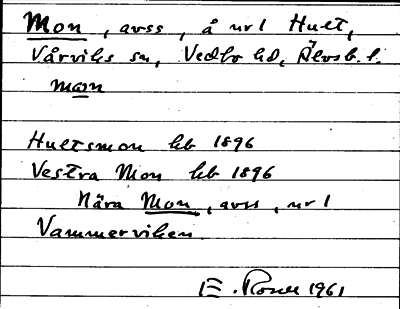 Mon, avss, å nr 1 Hult,
Vårviks sn, Vedbo hd, Älvsb. l.
man
Hultsmon kb 1896
Vestra Mon kb 1896
Nära Mon, avss, nr 1
Vammerviken.
E. Rosell 1961